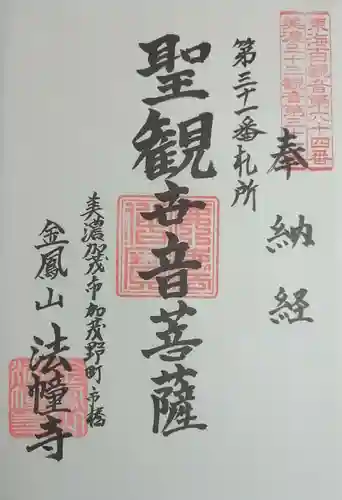 東海百観音第六十四番
美濃三十三観音第三十一
奉納経
第三十一番札所
聖観世音菩薩
美濃加茂市加茂野町市橋
金鳳山法幢寺